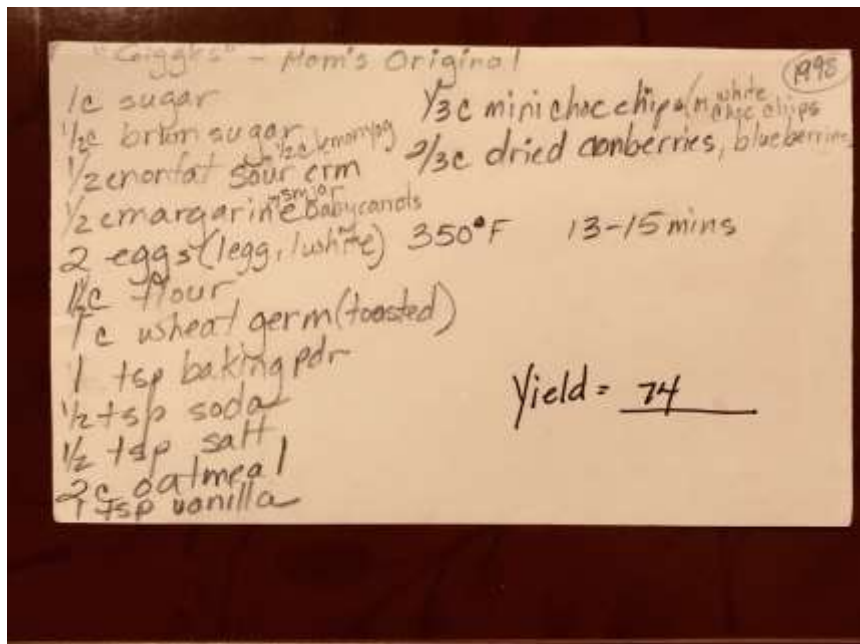 "Giggles" - Mom's Original
1998
1c sugar
1/2c brwn sugar
1/2c nonfat sour crm
1/2c margarine sm jar baby carrots
2 eggs (1egg, 1white)
1 1/2c flour
1c wheat germ (toasted)
1 tsp baking pdr
1/2 tsp soda
1/2 tsp salt
2c oatmeal
1 tsp vanilla
1/3c mini choc chips white choc chips
2/3c dried cranberries, blueberries
350°F 13-15 mins
Yield = 74